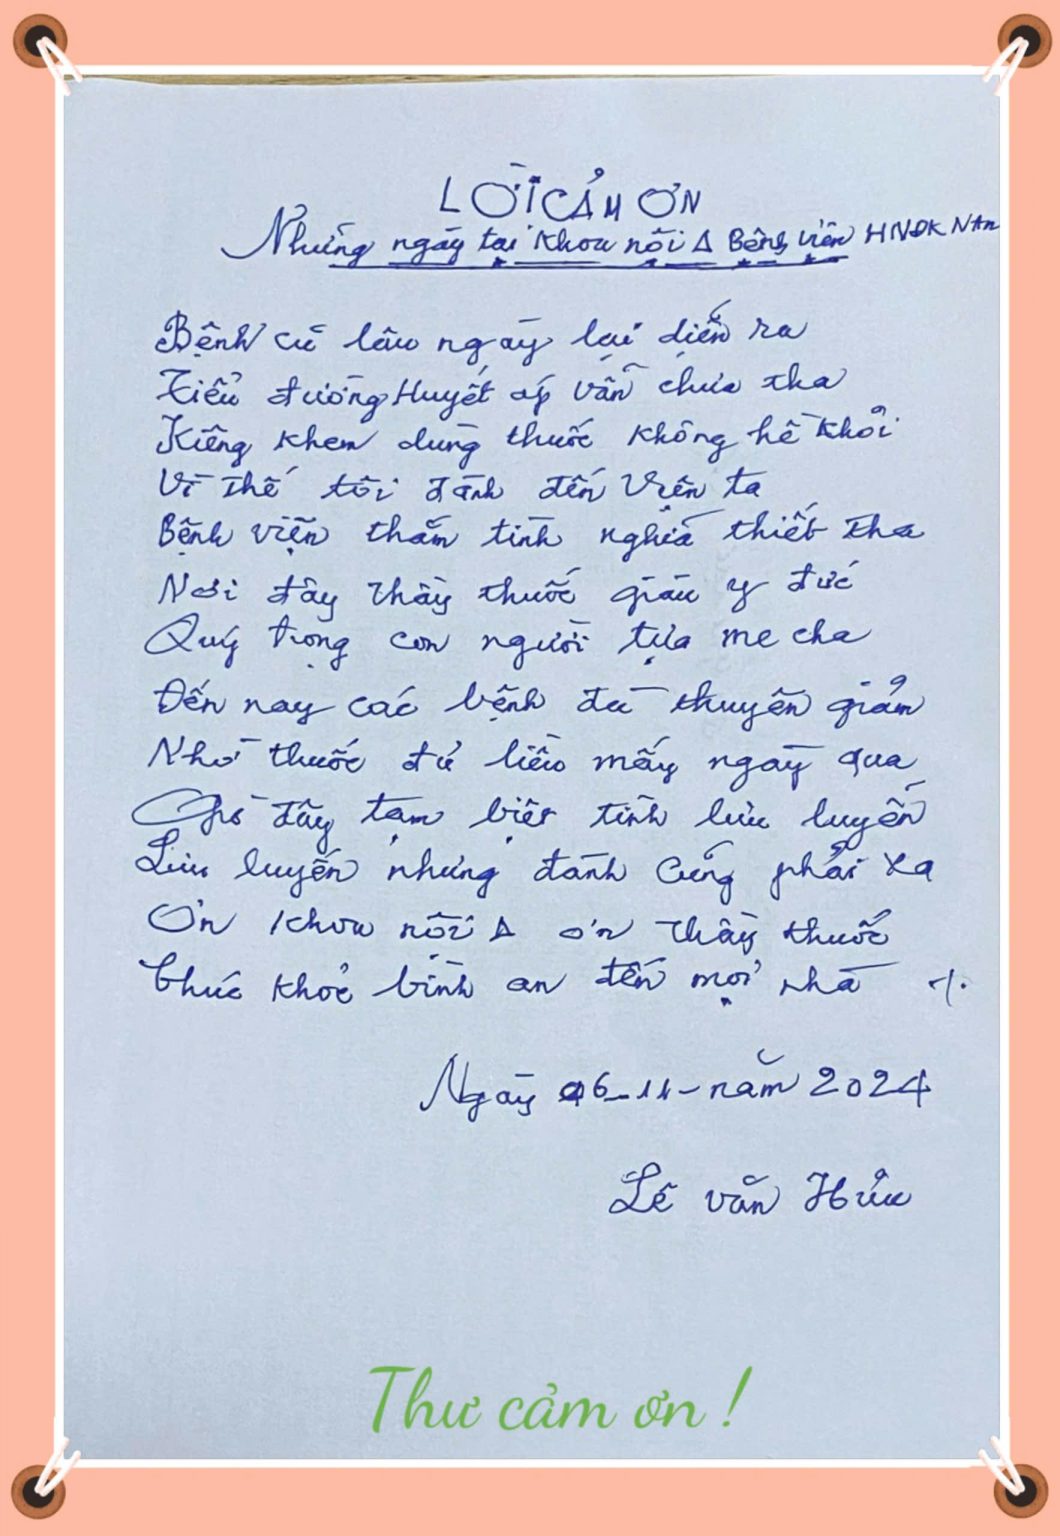 LỜI CẢM ƠN
Những ngày tại khoa nội A Bệnh viện HNĐK NAn
Bệnh cũ lâu ngày lại diễn ra
Tiểu đường Huyết áp vẫn chưa tha
Kiêng khem dùng thuốc không hề khỏi
Vì thế tôi đành đến viện ta
Bệnh viện thắm tình nghĩa thiết tha
Nơi đây thầy thuốc giàu y đức
Quý trọng con người tựa mẹ cha
Đến nay các bệnh đã thuyên giảm
Nhờ thuốc đủ liều mấy ngày qua
Giờ đây tạm biệt tình lưu luyến
Lưu luyến nhưng đành cũng phải xa
Ơn khoa nội A ơn thầy thuốc
Chúc khoẻ bình an đến mọi nhà ./.
Ngày 06-11-năm 2024
Lê văn Hửu
Thư cảm ơn !